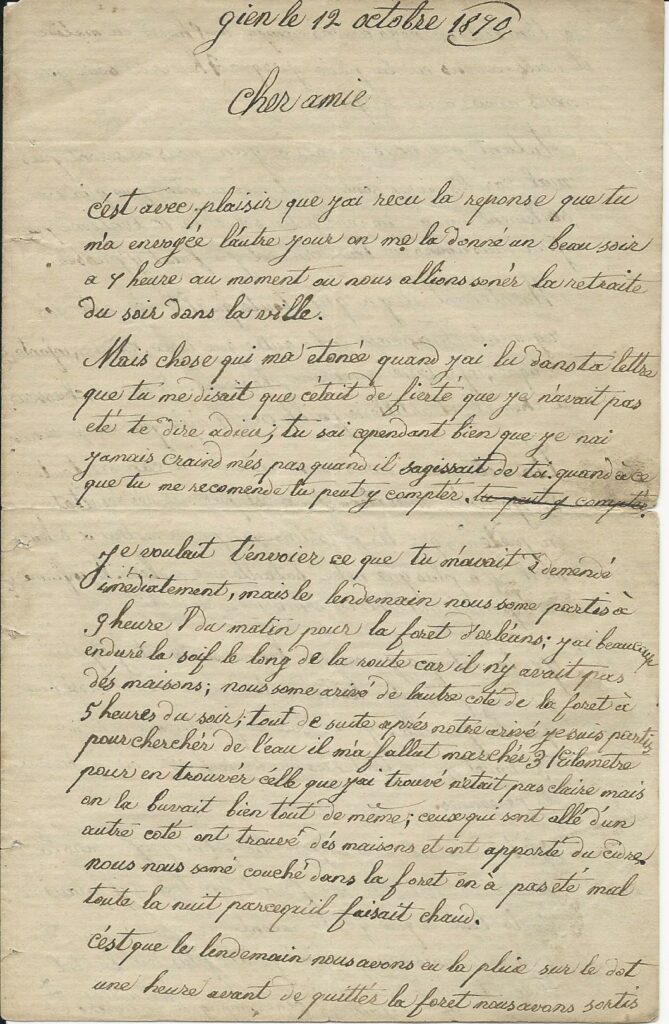 gien le 12 octobre 1870
Cher amie
c'est avec plaisir que j'ai recu la reponse que tu
m'a envogée l'autre jour on me la donné un beau soir
a 7 heure au moment ou nous allions sonér la retraite
du soir dans la ville.
Mais chose qui ma etonée quand j'ai lu dans ta lettre
que tu me disait que c'était de fierté que je n'avait pas
eté te dire adieu; tu sai cependant bien que je nai
jamais craind més pas quand il sagissait de toi. quand à ce
que tu me recomende tu peut y comptér. tu peut y comptér.
Je voulait t'envoier ce que tu m'avait demendé
imédiatement, mais le lendemain nous some partis à
9 heure du matin pour la foret d'orléans; j'ai beaucoup
enduré la soif le long de la route car il n'y avait pas
dés maisons; nous some arivé de lautre coté de la foret à
5 heures du soir; tout de suite après notre arivé je suis partis
pour cherchér de l'eau il m'a fallut marchér 3 Kilometre
pour en trouvér célle que j'ai trouvé n'etait pas claire mais
on la buvait bien tout de même; ceux qui sont allé d'un
autre coté ont trouvé dés maisons et ont apporté du cidre.
nous nous somé couché dans la foret on a pas été mal
toute la nuit parcequ'il faisait chaud.
c'ést que le lendemain nous avons eu la pluie sur le dot
une heure avant de quittés la foret nous avons sortis